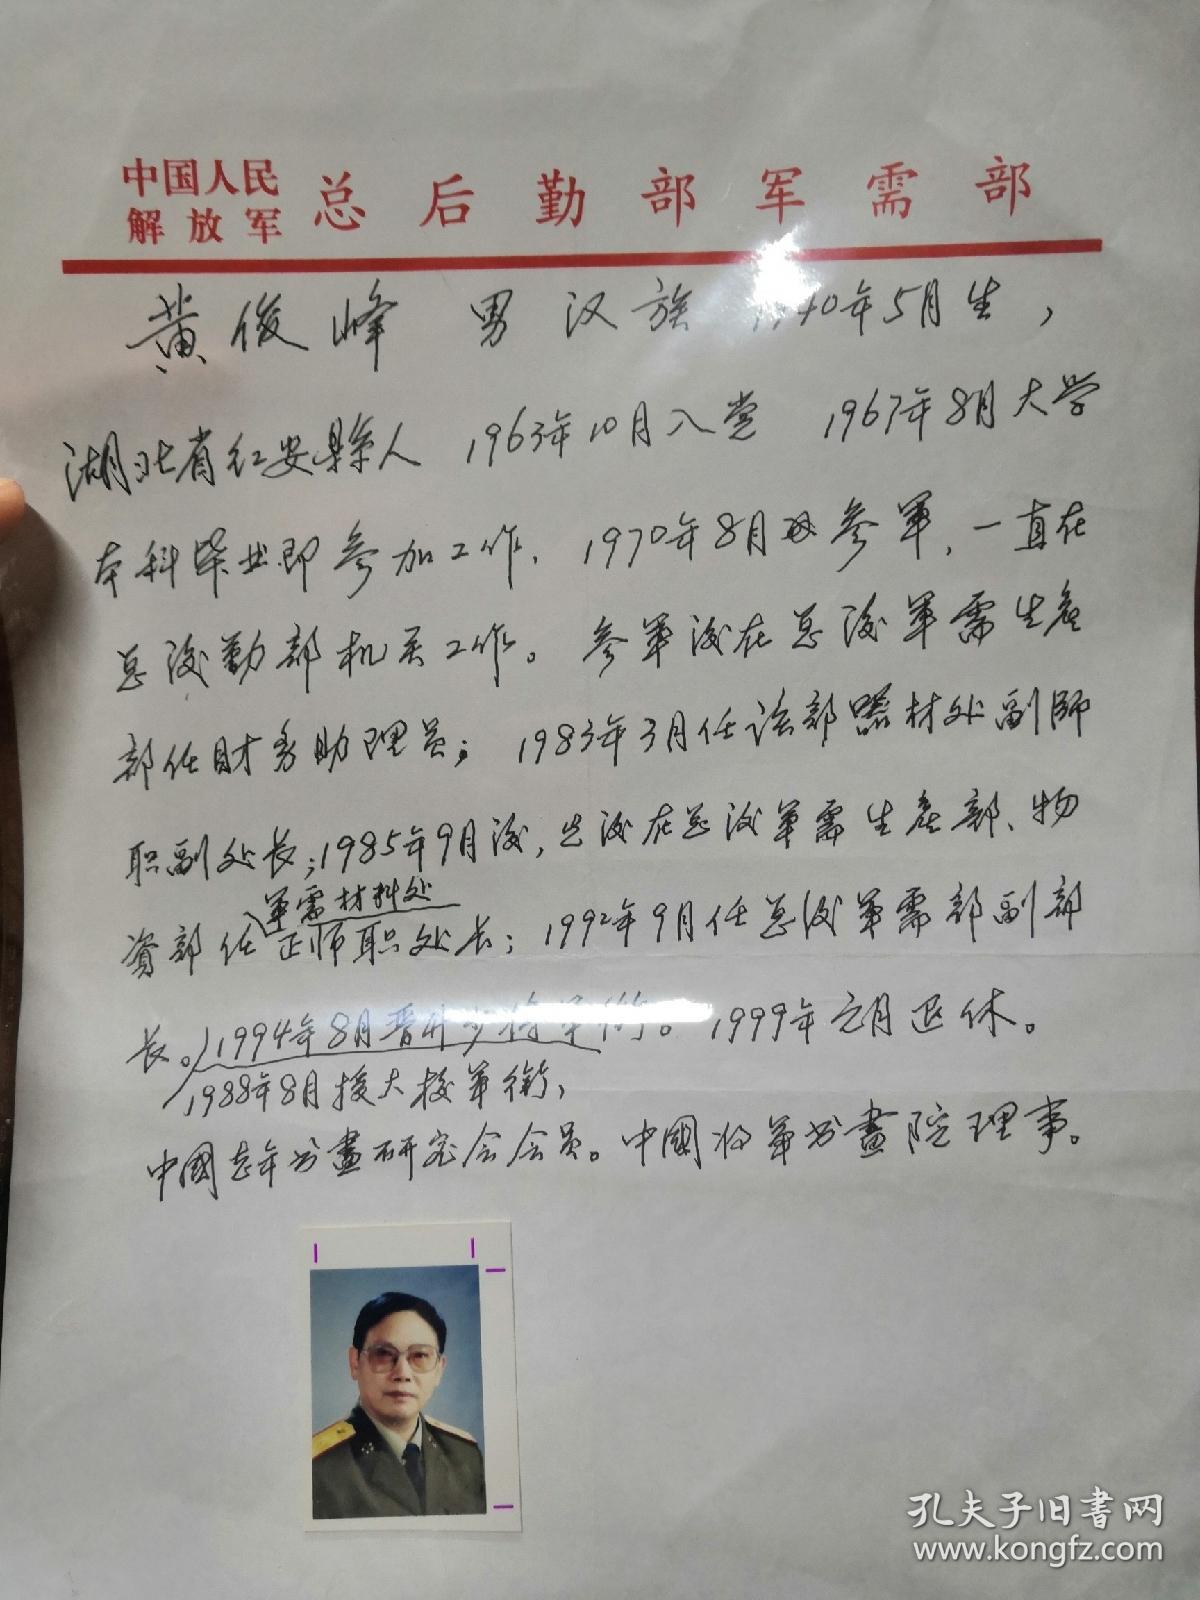 中国人民
解放军
总后勤部军需部
黄俊峰 男 汉族 1940年5月生，
湖北省红安縣人 1963年10月入党 1967年8月大学
本科毕业即参加工作. 1970年8月参軍，一直在
总後勤部机关工作。参軍後在总後軍需生産
部任财务助理员；1983年3月任该部器材处副师
职副处长；1985年9月後，先後在总後軍需生産部、物
軍需材料处
资部任正师职处长；1992年9月任总後軍需部副部
长。1994年8月晋升少将军衔。1999年元月退休。
1988年8月授大校軍衔，
中國老年书畫研究会会员。中國将軍书畫院理事。
孔夫子旧書网
www.kongfz.com